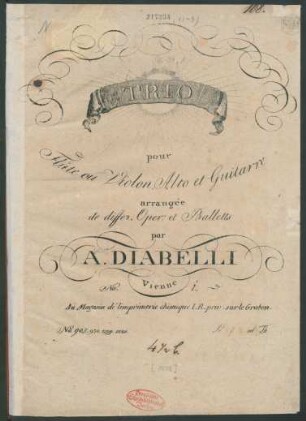 TRIO
pour
Flûte ou Violon Alto et Guitarre
arrangée
de differ. Oper. et Balletts
par
A. DIABELLI
No. Vienne 1.
Au Magasin de l'imprimerie chimique I. R. priv. sur le Graben.